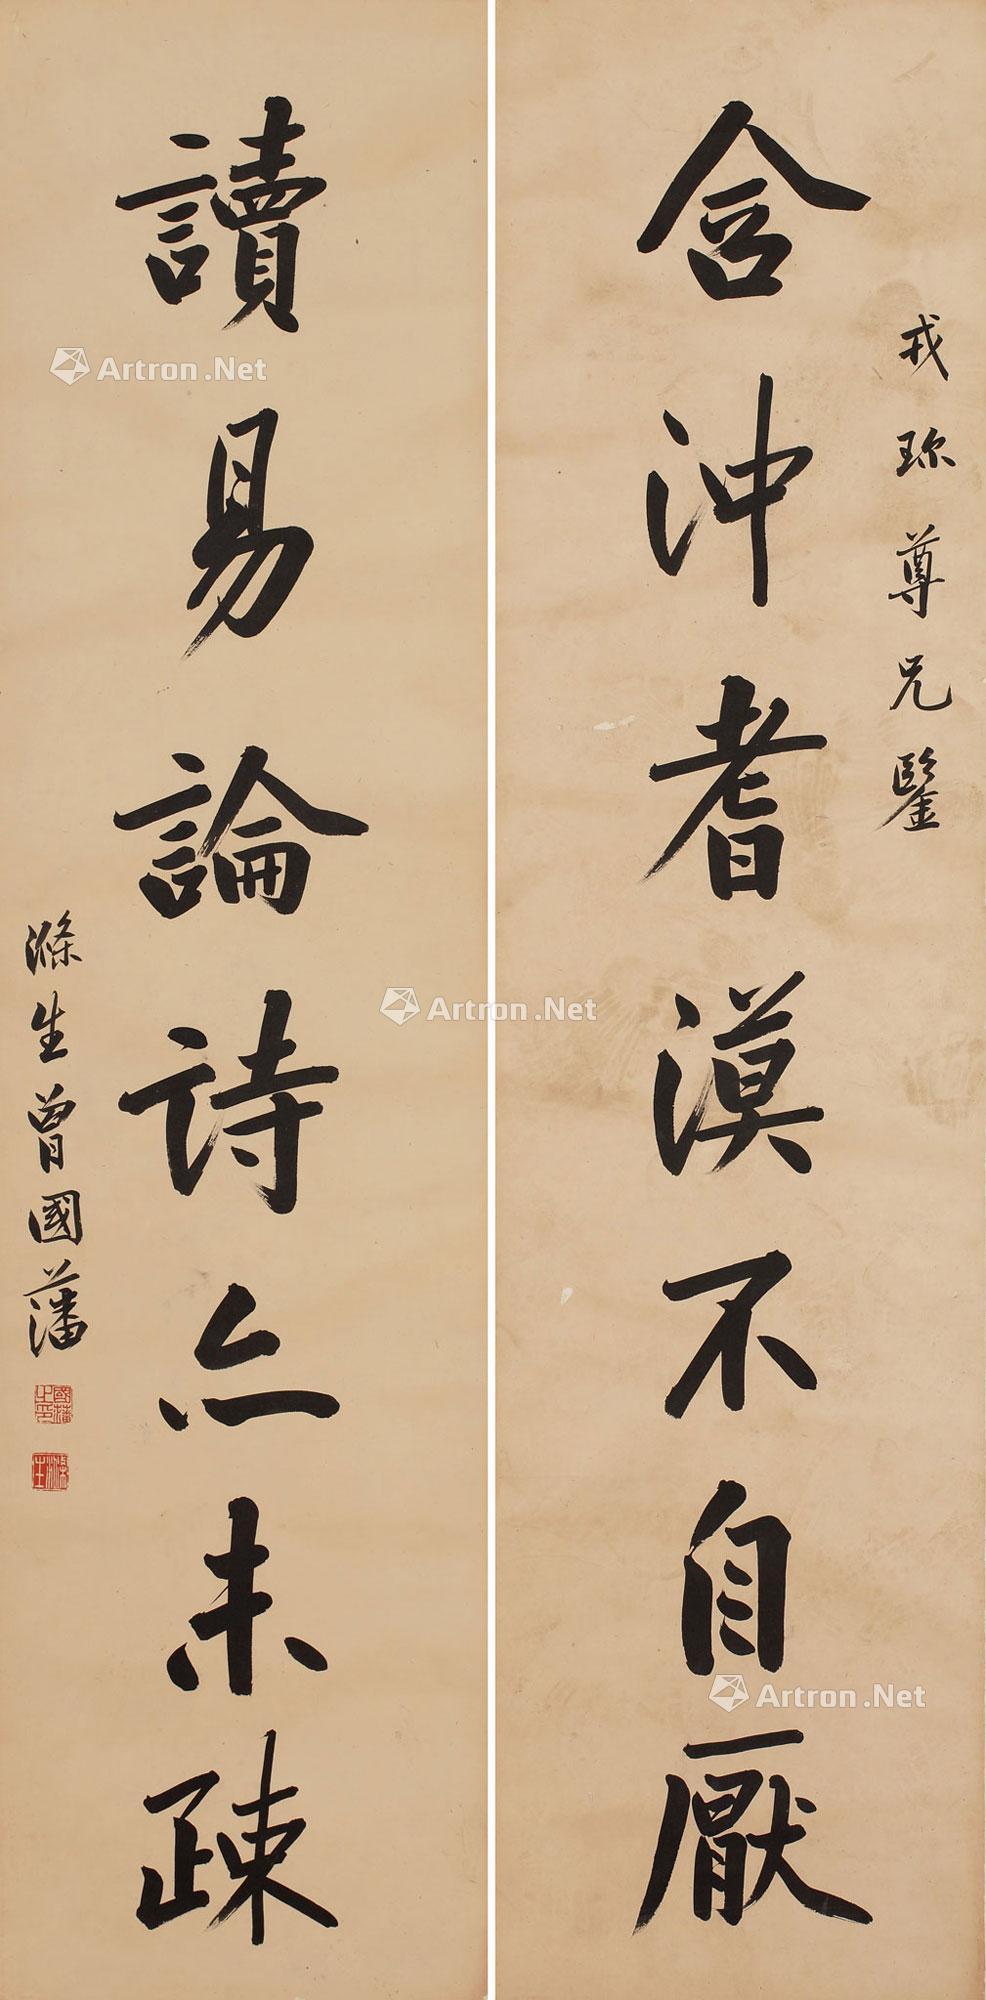 戎珎尊兄鑒
含沖耆漠不自厭
讀易論詩亦未疎
滌生曾國藩
國藩之印
滌生
Artron.Net
Artron.Net
Artron.Net